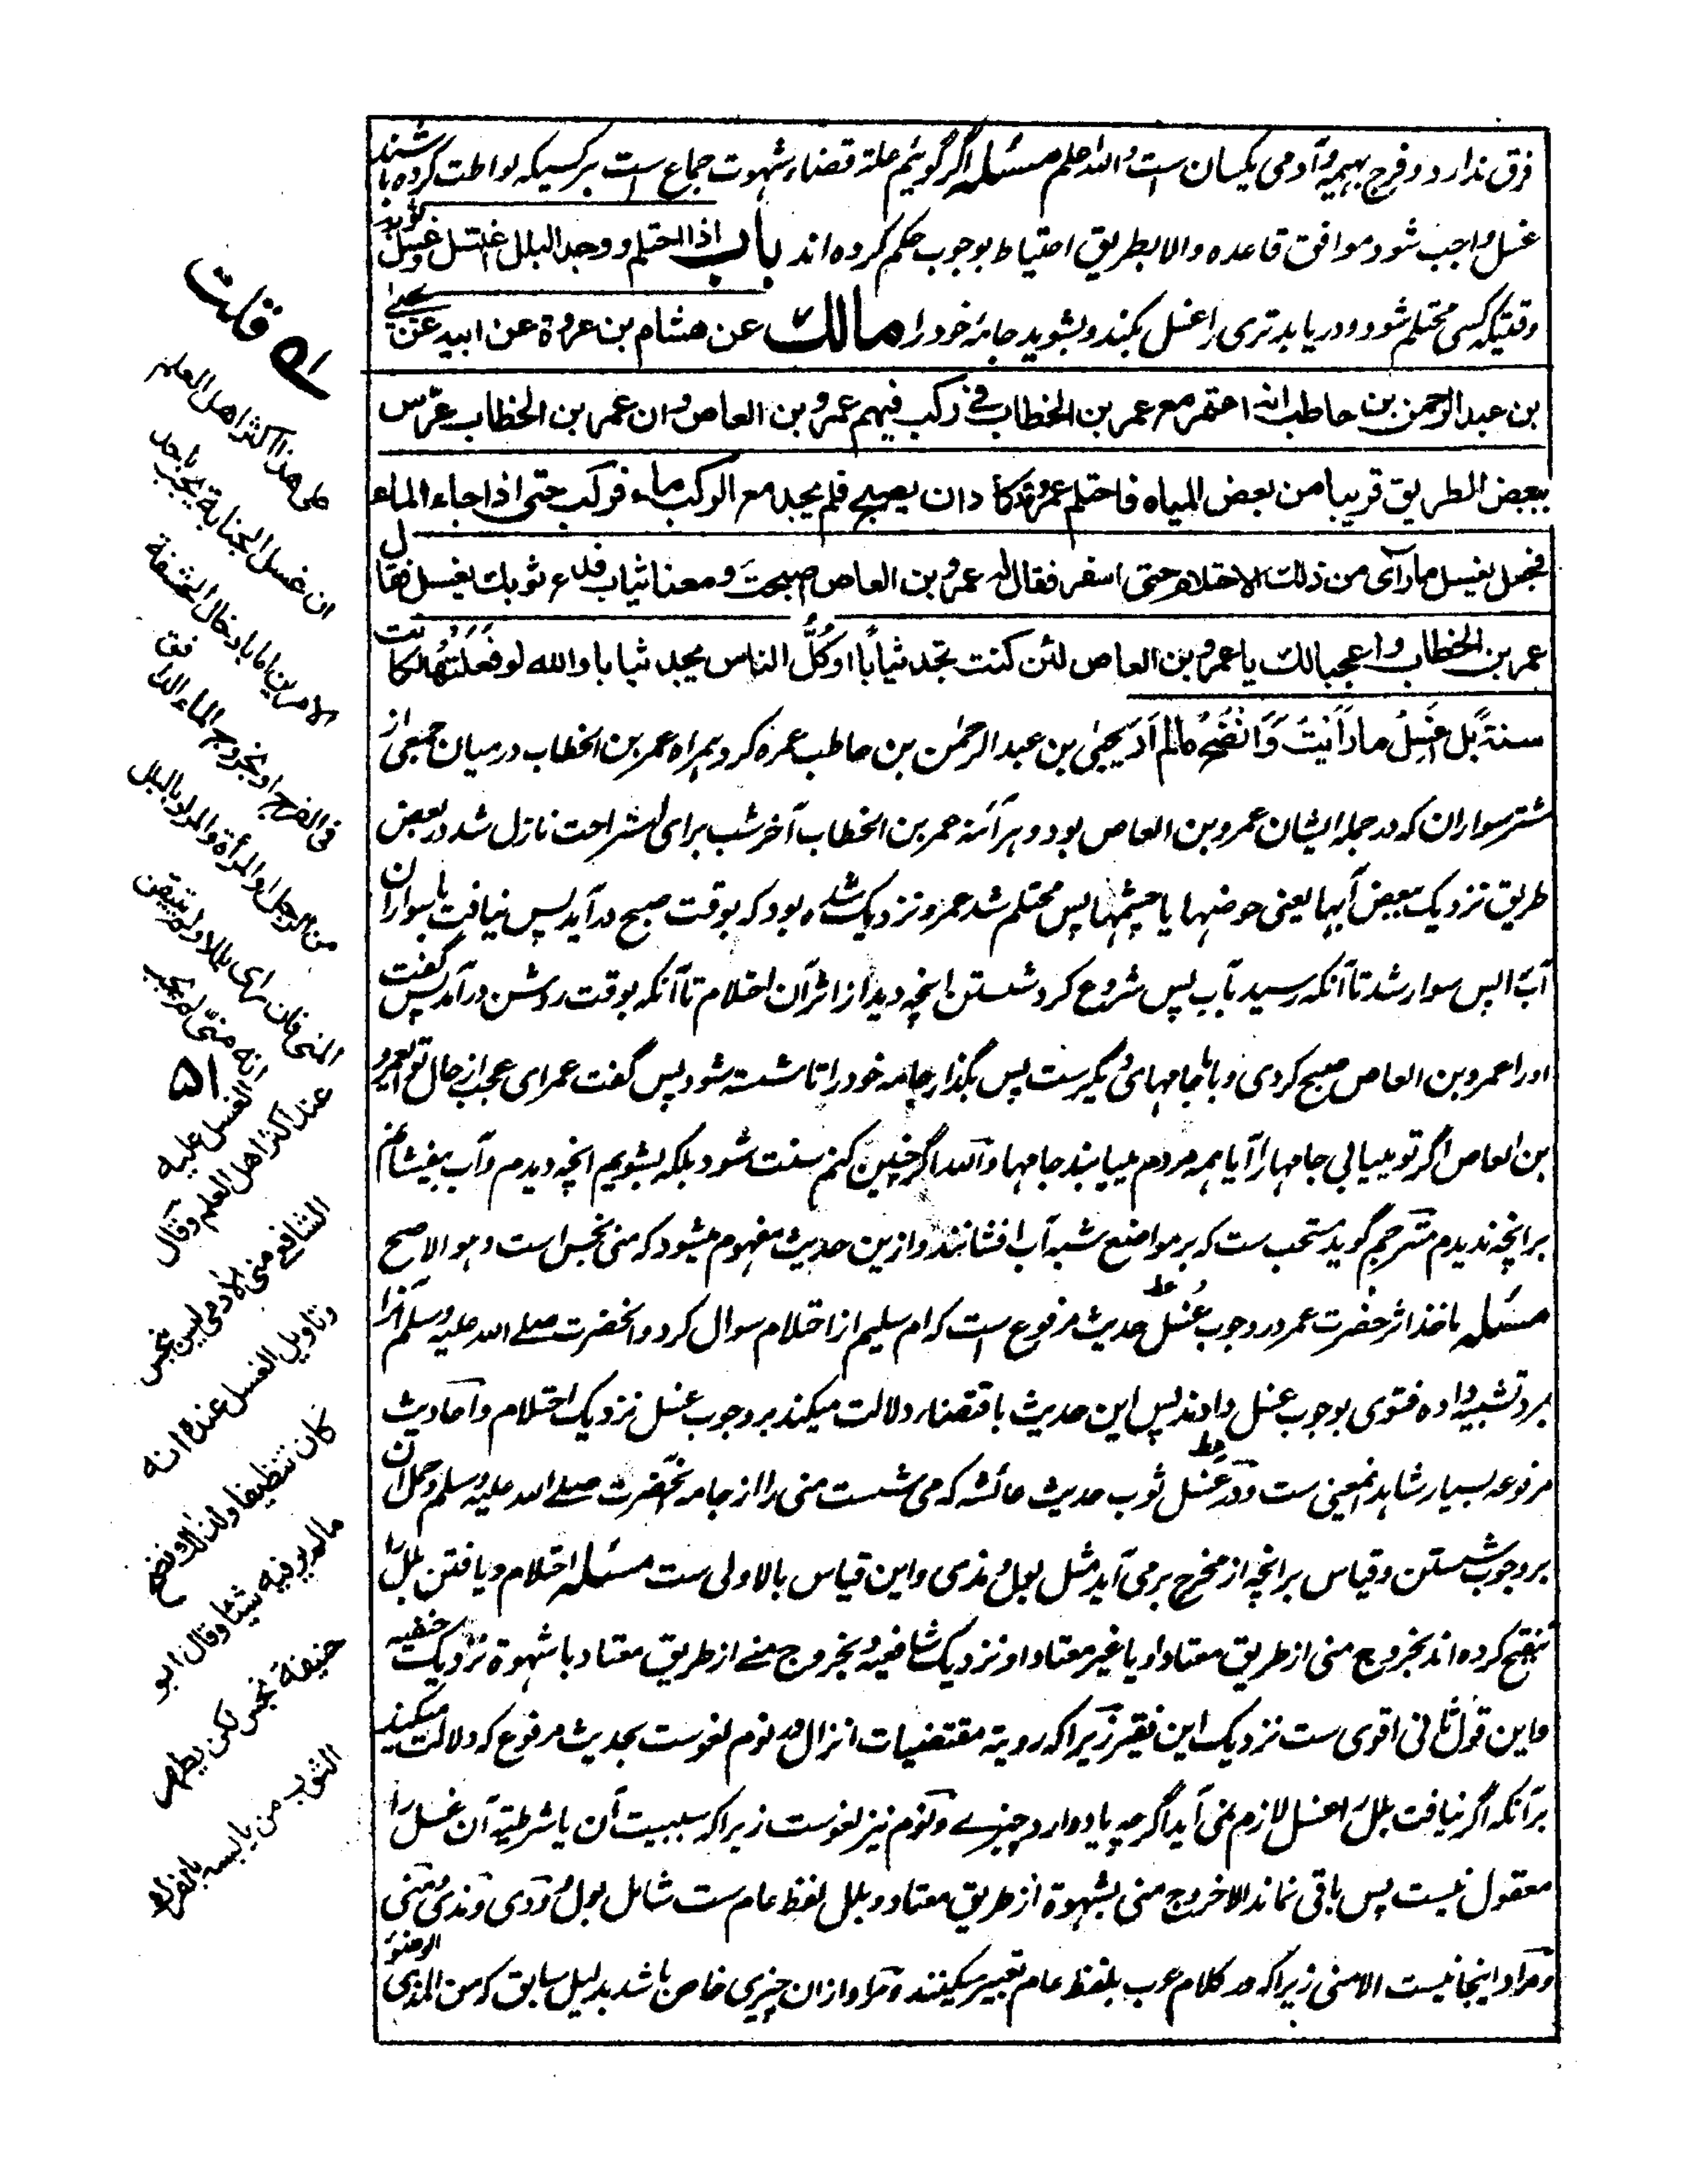 فرق ندارد و فرج بهیمه و آدمی یکسان است والله اعلم مسئله اگر گوئیم علة قضاء شهوت جماع است بر کسیکه لواطت کرده باشند
غسل واجب شود موافق قاعده والا بطریق احتیاط بوجوب حکم کرده اند باب اذا احتلم ووجد البلل اغتسل وغسل ثوبه
وقتیکه کسی محتلم شود و دریابد تری را غسل بکند و بشوید جامهٔ خود را مالك عن هشام بن عروة عن ابیه عن یحیی
بن عبد الرحمن بن حاطب انه اعتمر مع عمر بن الخطاب فی رکب فیهم عمرو بن العاص وان عمر بن الخطاب عرّس
ببعض الطریق قریبا من بعض المیاه فاحتلم عمر وقد کاد ان یصبح فلم یجد مع الرکب ماء فرکب حتی اذا جاء الماء
فجعل یغسل ما رآی من ذلك الاحتلام حتی اسفر فقال له عمرو بن العاص اصبحت ومعنا ثیاب فدع ثوبك یغسل فقال
عمر بن الخطاب واعجبا لك یا عمرو بن العاص لئن کنت تجد ثیاباً اوکلُّ الناس یجد ثیابا والله لو فعلتُها لکانت
سنةً بل اغسِلُ ما رأیتُ وَانضَحُ ما لم اَرَ یحیٰی بن عبد الرحمٰن بن حاطب عمره کرد همراه عمر بن الخطاب در میان جمعی از
شتر سواران که در جمله ایشان عمرو بن العاص بود و هر آئنه عمر بن الخطاب آخر شب برای استراحت نازل شد در بعض
طریق نزدیک ببعض آبها یعنی حوضها یا چشمها پس محتلم شد عمر و نزدیک شده بود که بوقت صبح در آید پس نیافت با سواران
آب را پس سوار شد تا آنکه رسید بآب پس شروع کرد شستن انچه دید از اثر آن احتلام تا آنکه بوقت روشن در آمد پس گفت
اورا عمرو بن العاص صبح کردی و با ما جامهای دیگرست پس بگذار جامه خود را تا شسته شود پس گفت عمر ای عجب از حال تو ای عمرو
بن العاص اگر تو مییابی جامها را آیا همه مردم مییابند جامها والله اگر چنین کنم سنت شود بلکه بشویم انچه دیدم و آب بیفشانم
بر انچه ندیدم مترجم گوید مستحب ست که بر مواضع شبه آب افشانند و ازین حدیث مفهوم میشود که منی نجس است و هو الاصح
مسئله ماخذ اثر حضرت عمر در وجوب غُسل حدیث مرفوع است که ام سلیم از احتلام سوال کرد و آنحضرت صلے الله علیه وسلم آنرا
بمرد تشبیه داده فتوی بوجوب غسل دادند پس این حدیث باقتضاء دلالت میکند بر وجوب غسل نزدیک احتلام و احادیث
مرفوعه بسیار شاهد اینمعنی ست و در غسل ثوب حدیث عائشه که می شست منی را از جامه آنحضرت صلے الله علیه وسلم وحمل آن
بر وجوب شستن و قیاس بر انچه از مخرج برمی آید مثل بول و مذی و این قیاس بالاولی ست مسئله احتلام و یافتن بلل را
تنقیح کرده اند بخروج منی از طریق معتاد او یا غیر معتاد او نزدیک شافعیه و بخروج منے از طریق معتاد با شهوة نزدیک حنفیه
و این قول ثانی اقوی ست نزدیک این فقیر زیرا که رویة مقتضیات انزال در نوم لغوست بحدیث مرفوع که دلالت میکند
بر آنکه اگر نیافت بلل را غسل لازم نمی آید اگرچه یاد دارد چیزے و نوم نیز لغوست زیرا که سببیت آن یا شرطیة آن غسل را
معقول نیست پس باقی نماند الا خروج منی بشهوة از طریق معتاد و بلل لفظ عام ست شامل بول و ودی و مذی و منی
و مراد اینجا نیست الا منی زیرا که در کلام عرب بلفظ عام تعبیر میکنند و مراد ازان چیزی خاص باشد بدلیل سابق که من المذی الوضوء
قلت
علی هذا اکثر اهل العلم
ان غسل الجنابة یجب باحد
الامرین اما بادخال الحشفة
فی الفرج او بخروج الماء الدافق
من الرجل او المرأة والمراد بالبلل
المنی فان رای بللا ولم یتیقن
انه منیّ لم یجب
۵۱
الغسل علیه
عند اکثر اهل العلم وقال
الشافعی منی الآدمی لیس بنجس
وتاویل الغسل عنده انه
کان تنظیفا ولذلك نضح
ما لم یر فیه شیئا وقال ابو
حنیفة نجس لکن یطهر
الثوب من یابسه بالفرك